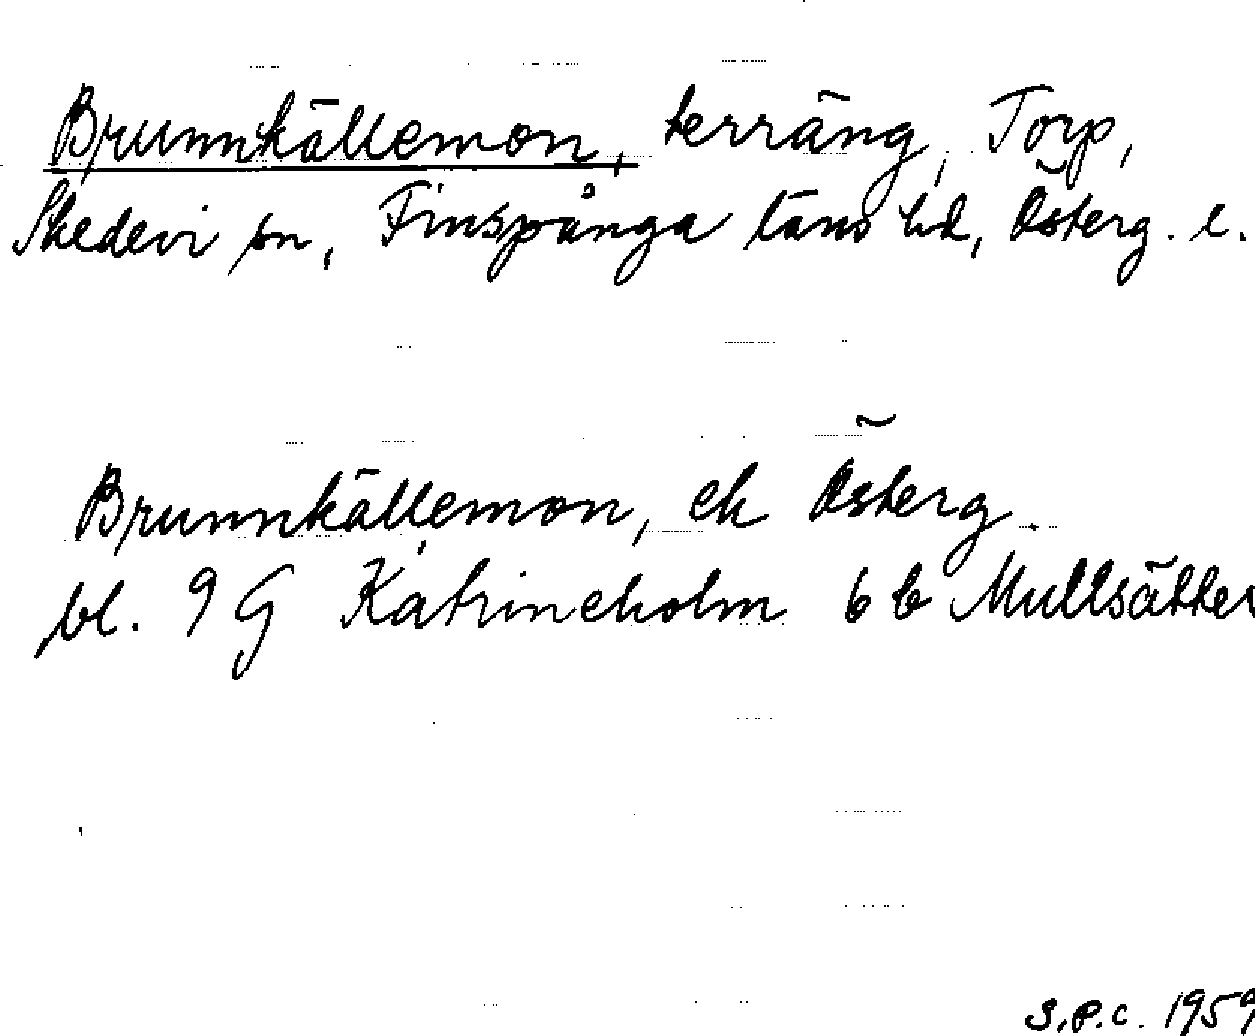 Brunnkällemon, terräng, Torp,
Skedevi sn, Finspånga läns hd, Österg. l.
Brunnkällemon, ek Österg.
bl. 9 G Katrineholm 6 b Mullsätter
S.P.C. 1959